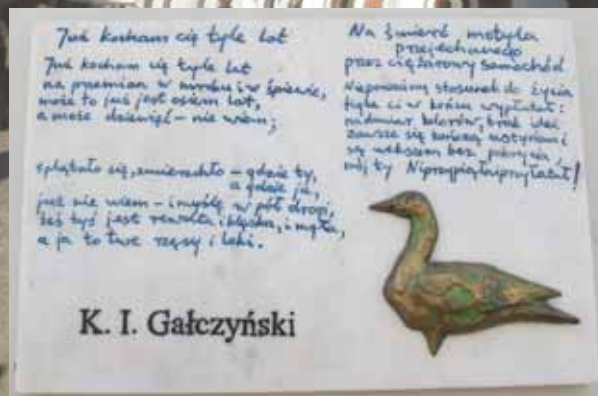 Już kocham cię tyle lat
Już kocham cię tyle lat
na przemian w mroku i w śpiewie,
może to już jest osiem lat,
a może dziewięć – nie wiem;
splątało się, zmierzchło – gdzie ty,
a gdzie ja,
już nie wiem – i myślę w pół drogi,
żeś tyś jest rewolta i klęska, i mgła,
a ja to twe rzęsy i loki.
Na śmierć motyla
przejechanego
przez ciężarowy samochód
Niepoważny stosunek do życia
figla ci w końcu wypłatał:
nadmiar kolorów, brak idei
zawsze się kończą
są wekslem bez pokrycia,
mój ty
K. I. Gałczyński